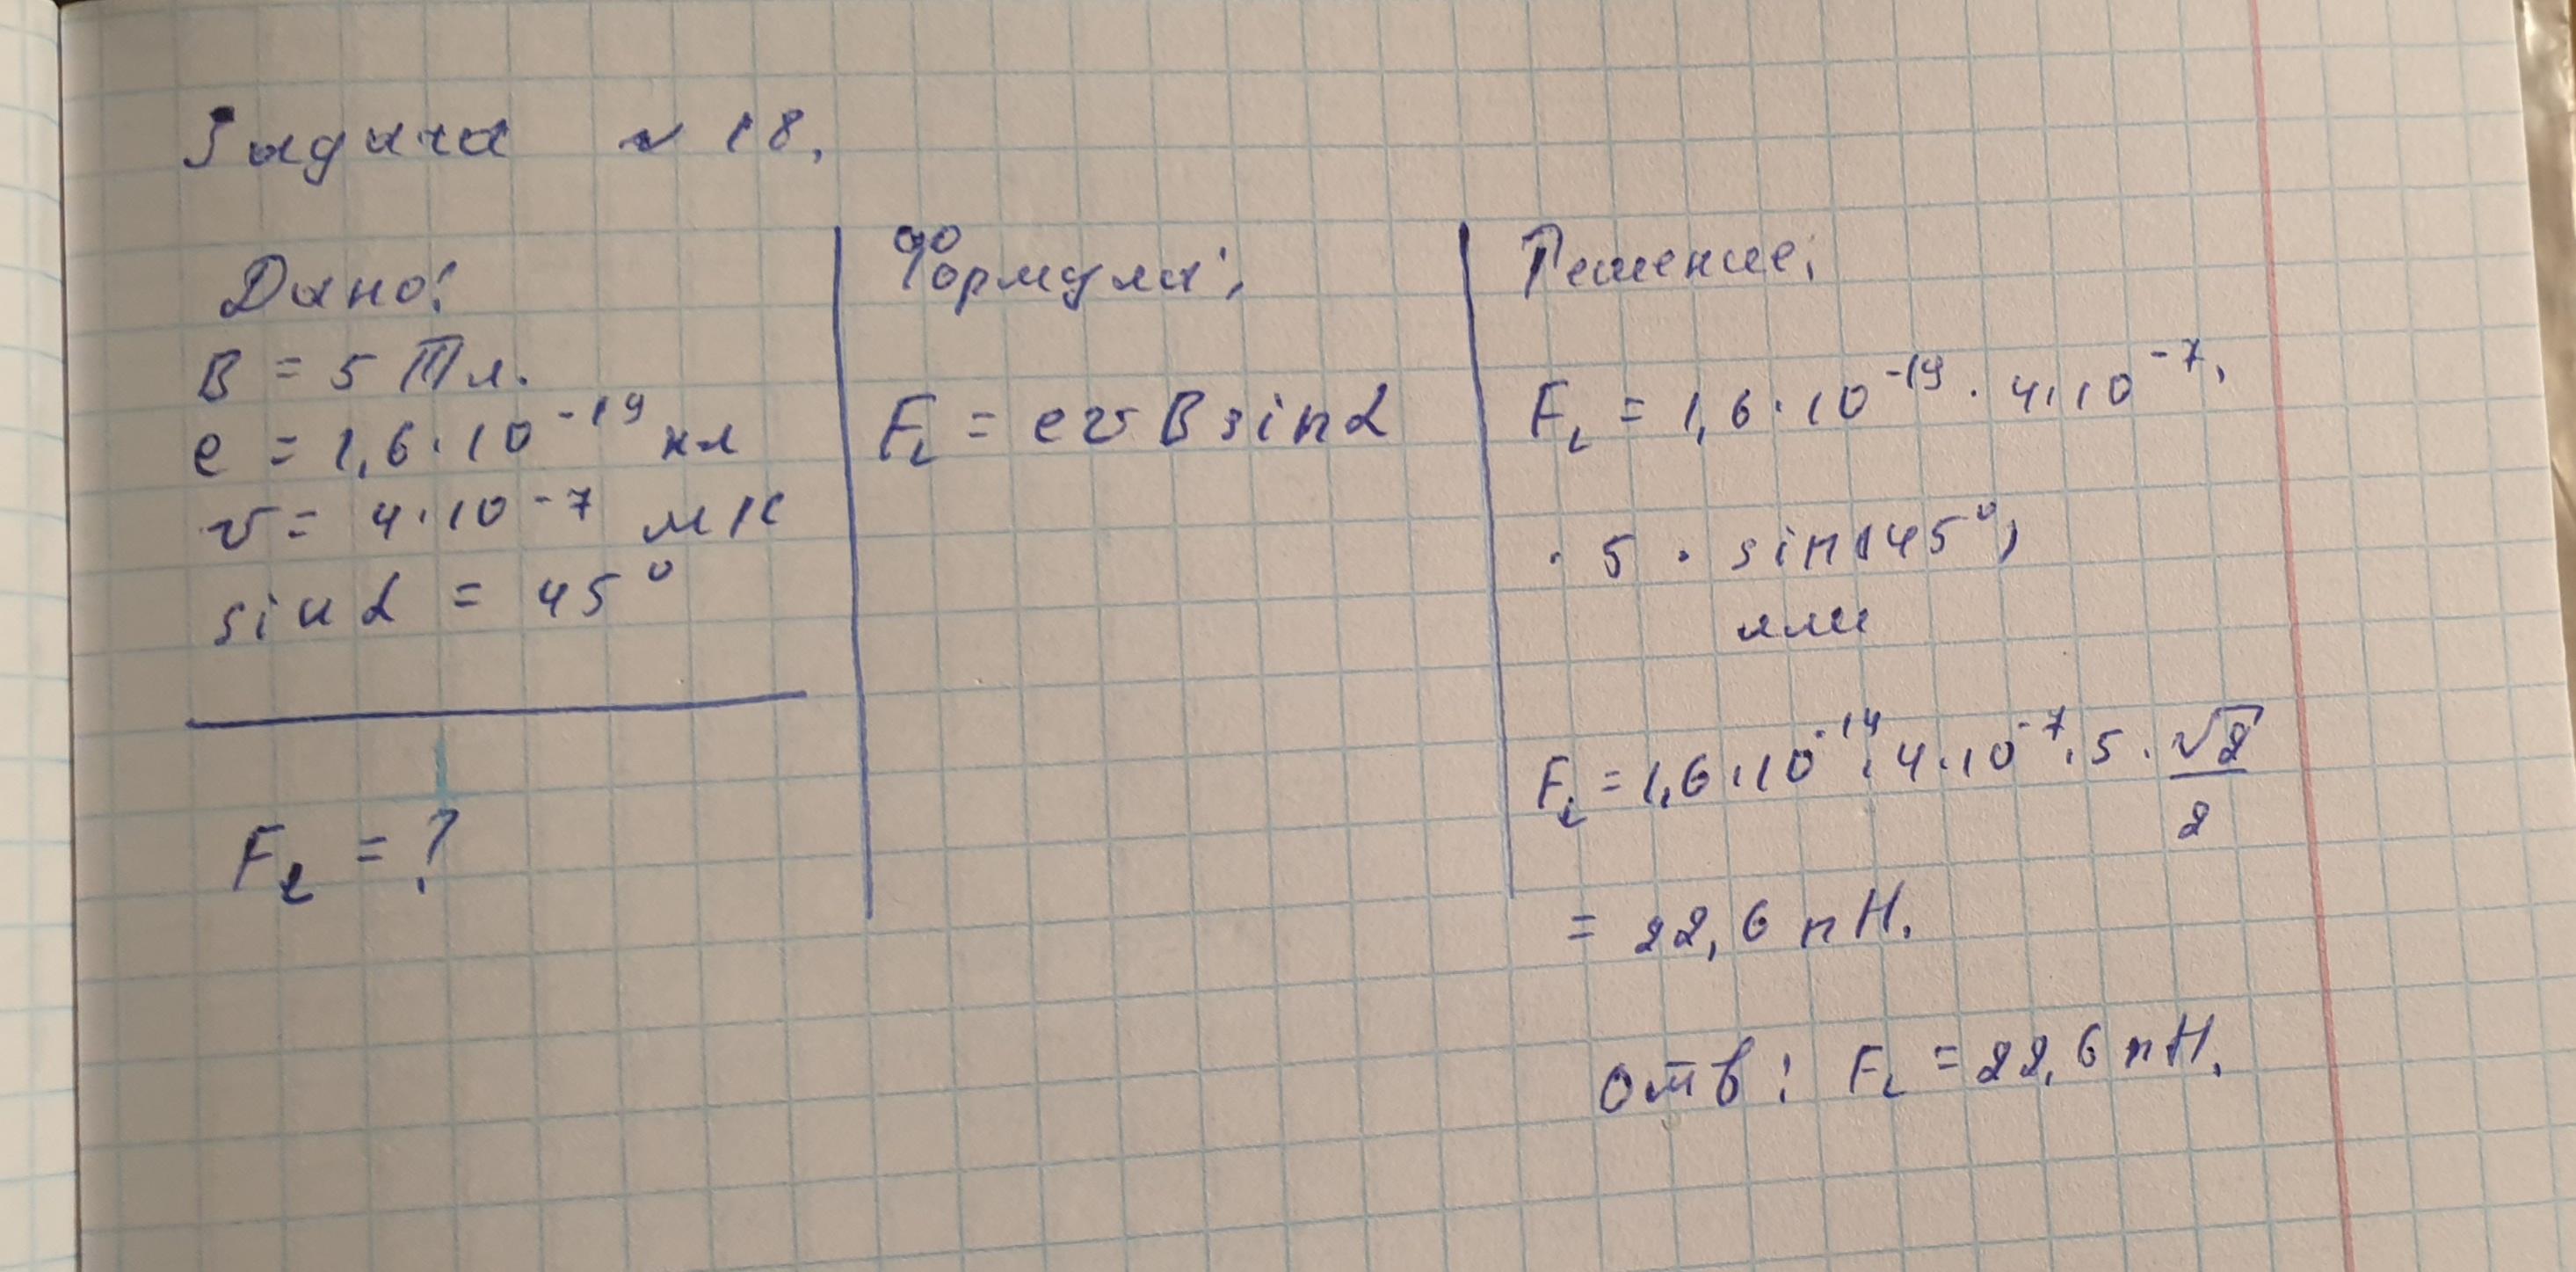 Задача № 18.
Дано:
B = 5 Тл.
e = 1,6 · 10⁻¹⁹ кл
v = 4 · 10⁻⁷ м/с
sin α = 45°
F_L = ?
Формула:
F_L = evB sin α
Решение:
F_L = 1,6 · 10⁻¹⁹ · 4 · 10⁻⁷ ·
· 5 · sin 45°;
или
F_L = 1,6 · 10⁻¹⁹ · 4 · 10⁻⁷ · 5 · √2/2
= 22,6 пН.
Отв: F_L = 22,6 пН.